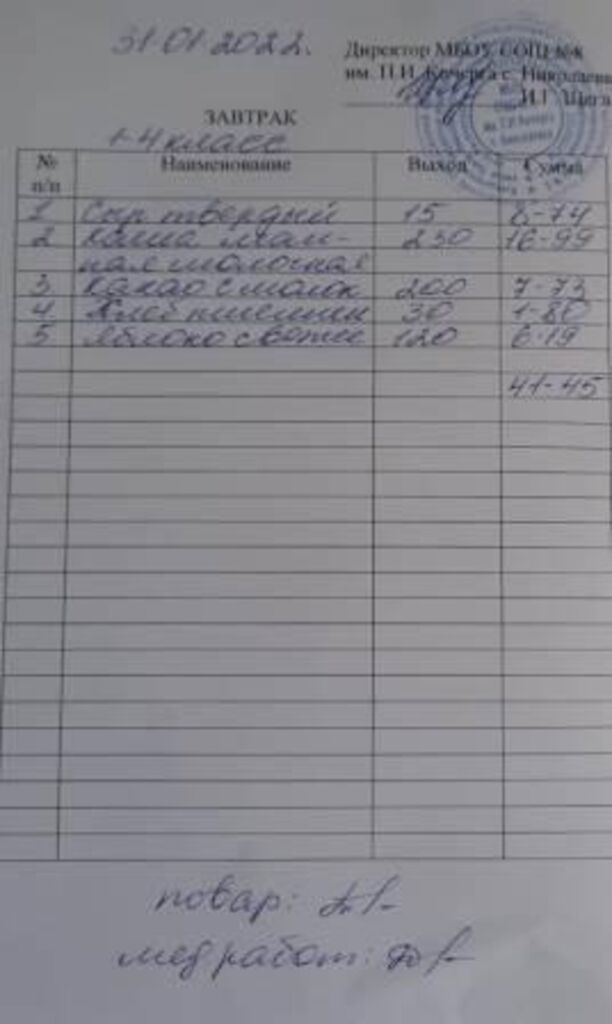 31.01.2022.
Директор МБОУ СОШ №8
им. П.И. Кочерга с. Николаенко
И.Г. Щега
ЗАВТРАК
1-4 класс
№ п/п Наименование Выход Сумма
1 Сыр твердый 15 8-74
2 Каша ман- 230 16-99
ная молочная
3 Какао с молок 200 7-73
4 Хлеб пшеничн 30 1-80
5 Яблоко свежее 120 6-19
41-45
повар:
мед работ: